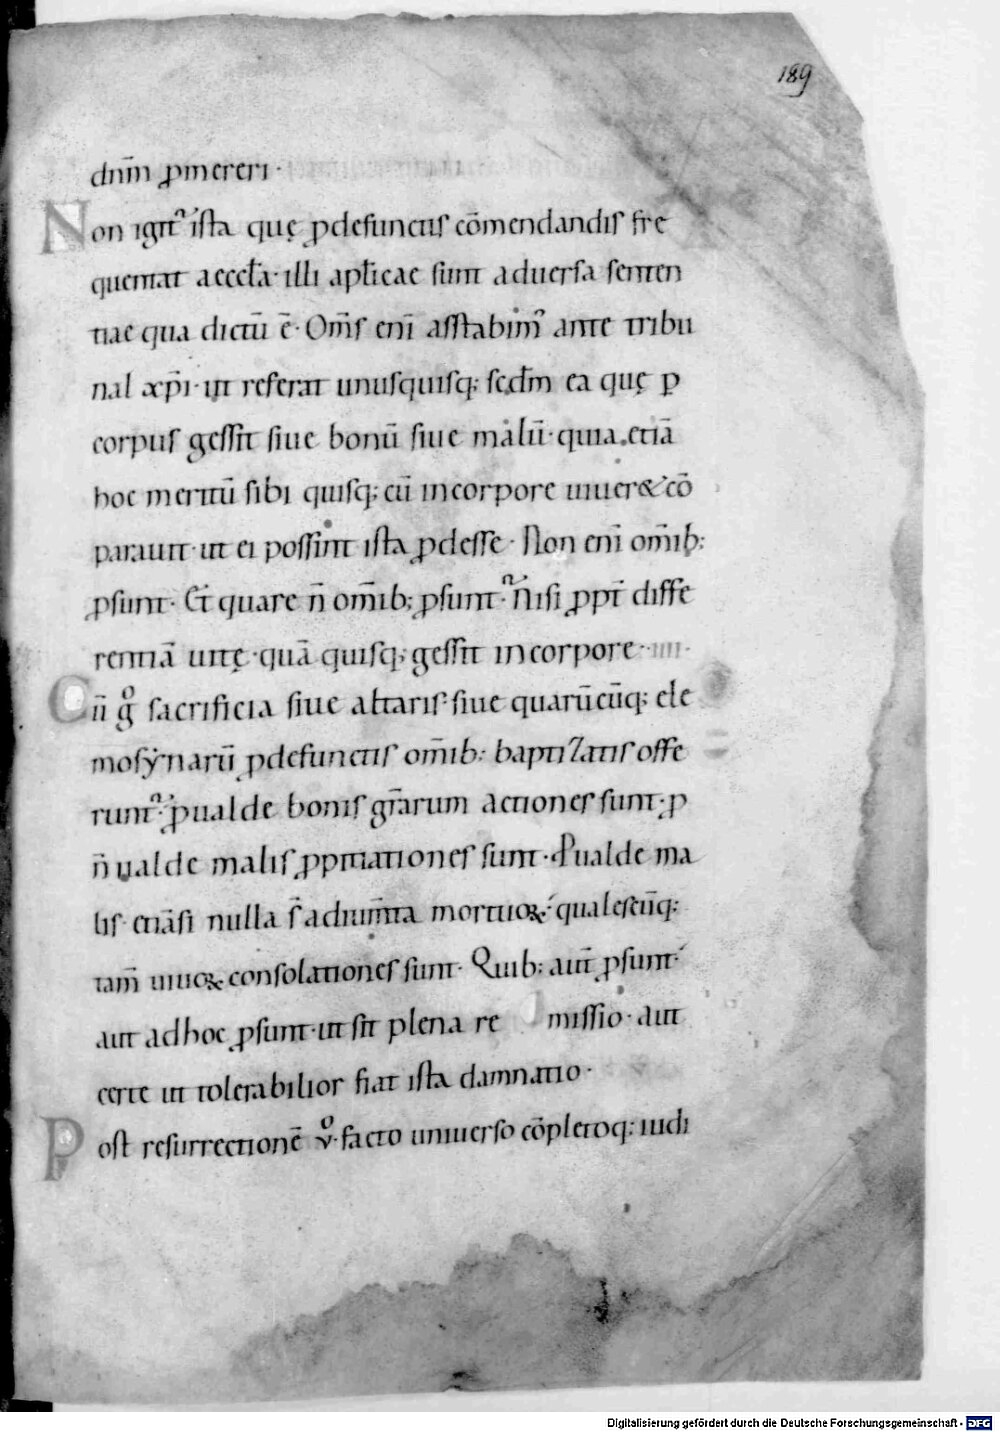 189
dnm̄ ꝓmereri·
Non igit᷑ ista quę ꝓdefunctis cōmendandis fre
quentat aeccła· illi apłicae sunt aduersa senten
tiae qua dictū ē· Om̄s eni᷑ asstabim᷒ ante tribu
nal xp̄i· ut referat unusquisq; scd̄m ea quę ꝑ
corpus gessit siue bonū siue malū· quia etiā
hoc meritū sibi quisq; cū incorpore uiuer& cō
parauit· ut ei possint ista ꝓdesse· Non eni᷑ om̄ib;
ꝓsunt· Et quare n̄ om̄ib; ꝓsunt· Nisi ꝓpt̄ diffe
rentiā uitę· quā quisq; gessit incorpore·
Cū g̊ sacrificia siue altaris· siue quarūcūq; ele
mosynarū ꝓdefunctis om̄ib; baptizatis offe
runt᷑· ꝓualde bonis gr̄arum actiones sunt· ꝓ
n̄ ualde malis ꝓpitiationes sunt· Ꝓualde ma
lis· etiāsi nulla s̄ adium̄ta mortuoꝝ· qualescūq;
tam̄ uiuoꝝ consolationes sunt· Quib; aut̄ ꝓsunt·
aut adhoc ꝓsunt· ut sit plena re missio· aut
certe ut tolerabilior fiat ista damnatio·
Post resurrectionē v̊· facto uniuerso cōpletoq; iudi
Digitalisierung gefördert durch die Deutsche Forschungsgemeinschaft - DFG